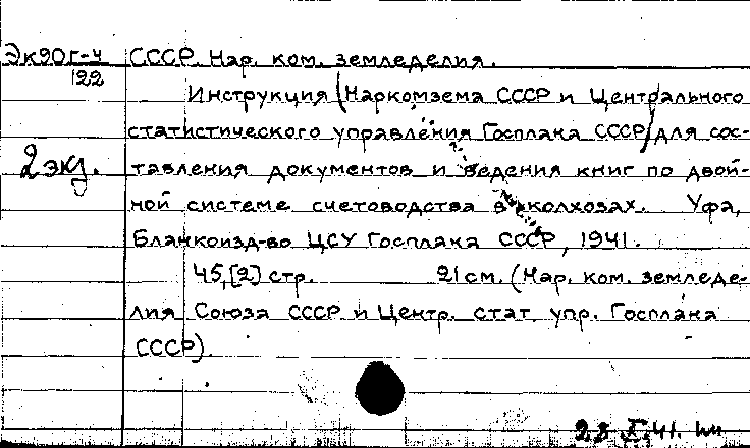 Эк90г-4 СССР. Нар. ком. земледелия.
122
Инструкция (Наркомзема СССР и Центрального
статистического управления Госплана СССР) для сос-
2 экз. тавления документов и ведения книг по двой-
ной системе счетоводства в колхозах. Уфа,
Бланкоизд-во ЦСУ Госплана СССР, 1941.
45,[2] стр. 21 см. (Нар. ком. земледе-
лия Союза ССР и Центр. стат. упр. Госплана
СССР).
28 X 41.